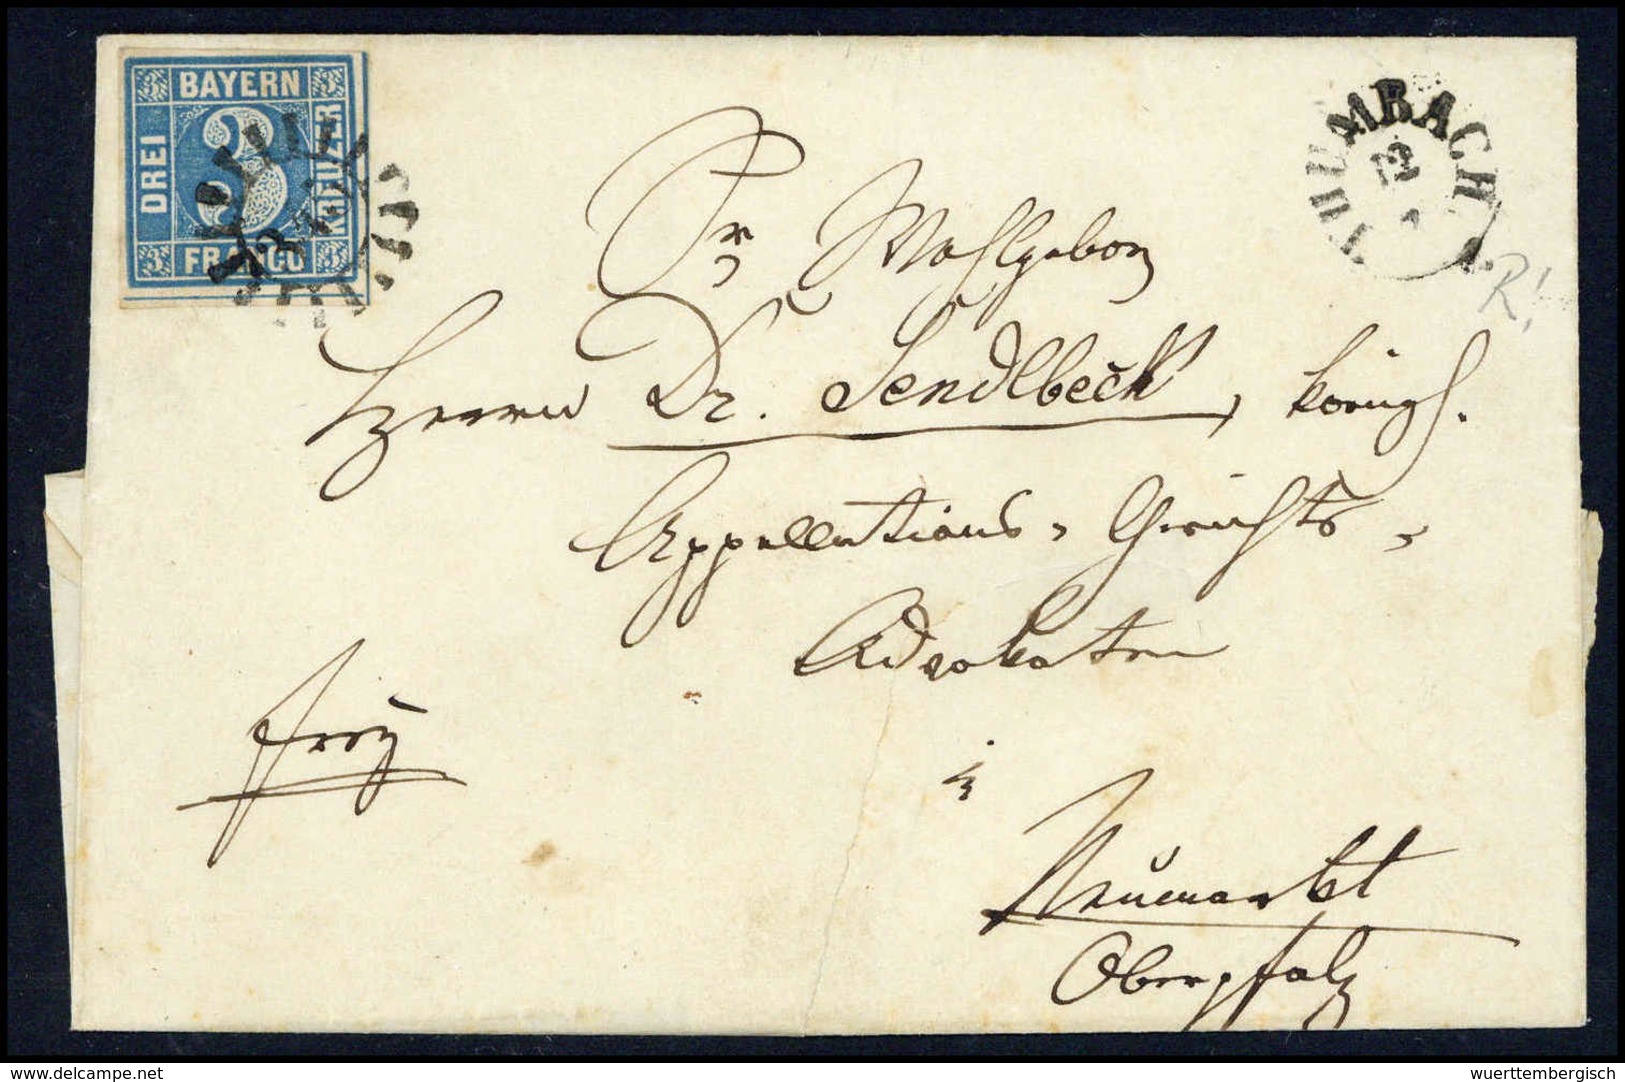 BAYERN
DREI
3
KREUZER
FRANCO
THUMBACH
12
R!
Sr Wohlgeborn
Herrn Dr. Sendlbeck, königl.
Appellations-Gerichts-
Advokaten
frey
in
Neumarkt
Oberpfalz
delcampe.net
wuerttembergisch